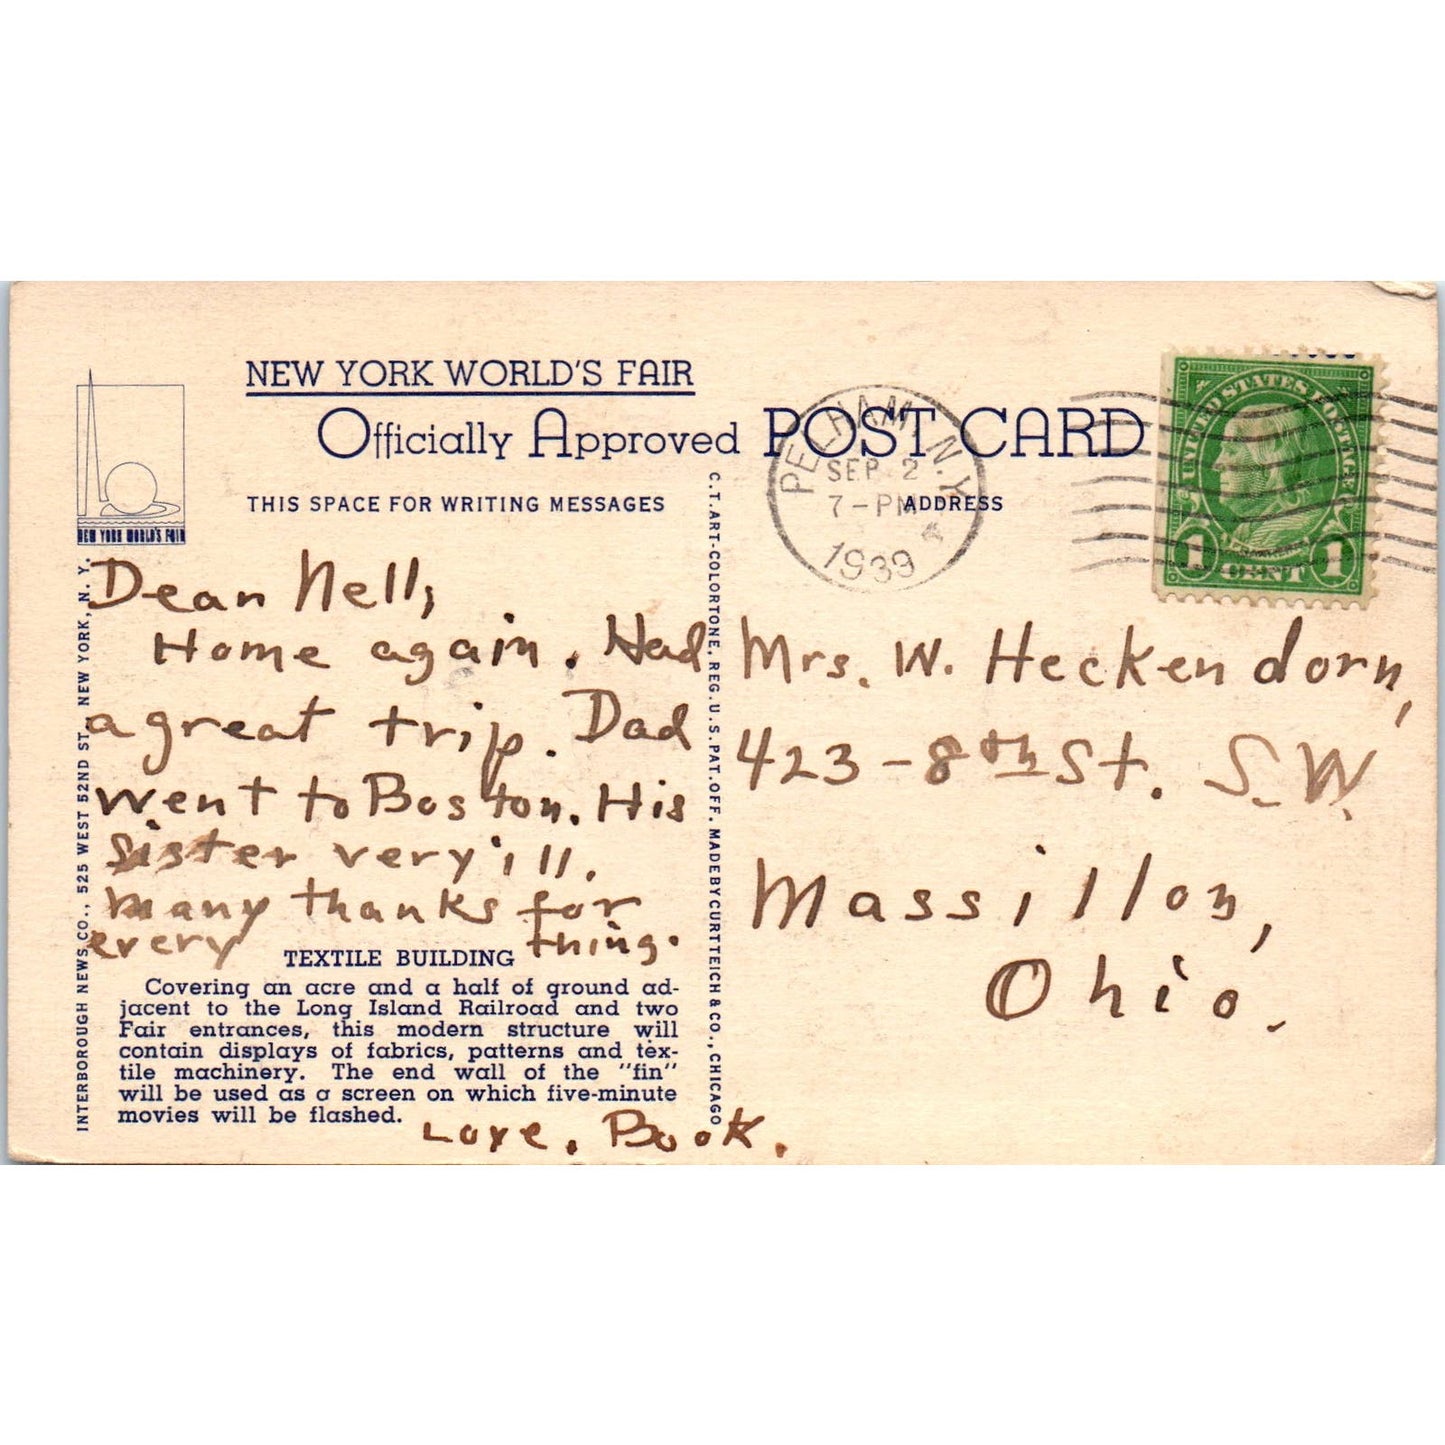 NEW YORK WORLD'S FAIR
Officially Approved POST CARD
THIS SPACE FOR WRITING MESSAGES
ADDRESS
NEW YORK WORLD'S FAIR
PELHAM N.Y.
SEP 2
7-PM
1939
UNITED STATES POSTAGE
FRANKLIN
1 CENT 1
Dear Nell,
Home again. Had
a great trip. Dad
went to Boston. His
sister very ill.
Many thanks for
every thing.
TEXTILE BUILDING
Covering an acre and a half of ground ad-
jacent to the Long Island Railroad and two
Fair entrances, this modern structure will
contain displays of fabrics, patterns and tex-
tile machinery. The end wall of the "fin"
will be used as a screen on which five-minute
movies will be flashed.
Love, Book.
INTERBOROUGH NEWS CO., 525 WEST 52ND ST., NEW YORK, N. Y.
C.T. ART-COLORTONE, REG. U.S. PAT. OFF. MADE BY CURT TEICH & CO., CHICAGO
Mrs. W. Heckendorn,
423-8th St. S.W.
Massillon,
Ohio.